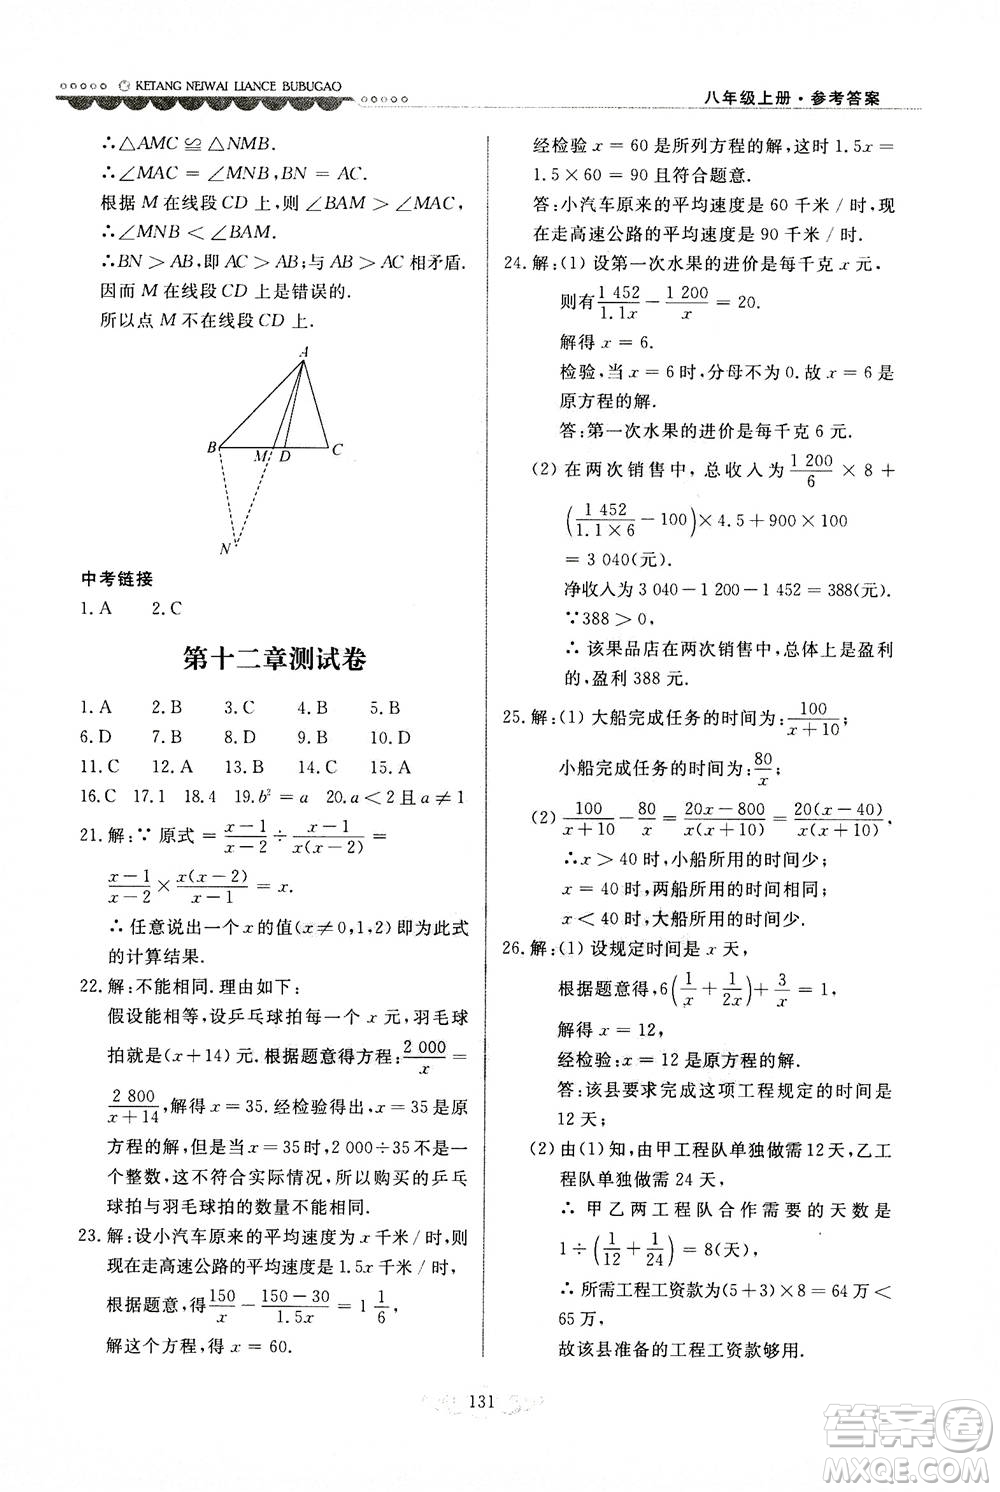 KETANG NEIWAI LIANCE BUBUGAO
八年级上册·参考答案
∴△AMC≌△NMB.
∴∠MAC=∠MNB,BN=AC.
根据M在线段CD上,则∠BAM>∠MAC,
∴∠MNB<∠BAM.
∴BN>AB,即AC>AB;与AB>AC相矛盾.
因而M在线段CD上是错误的.
所以点M不在线段CD上.
A
B M D C
N
中考链接
1.A 2.C
第十二章测试卷
1.A 2.B 3.C 4.B 5.B
6.D 7.B 8.D 9.B 10.D
11.C 12.A 13.B 14.C 15.A
16.C 17.1 18.4 19.b²=a 20.a<2且a≠1
21.解:∵原式=(x-1)/(x-2)÷(x-1)/(x(x-2))=
(x-1)/(x-2)×x(x-2)/(x-1)=x.
∴任意说出一个x的值(x≠0,1,2)均为此式
的计算结果.
22.解:不能相同.理由如下:
假设能相等,设乒乓球拍每一个x元,羽毛球
拍就是(x+14)元.根据题意得方程:2 000/x=
2 800/(x+14),解得x=35.经检验得出,x=35是原
方程的解,但是当x=35时,2 000÷35不是一
个整数,这不符合实际情况,所以购买的乒乓
球拍与羽毛球拍的数量不可能相同.
23.解:设小汽车原来的平均速度是x千米/时,则
现在走高速公路的平均速度是1.5x千米/时,
根据题意,得150/x-(150-30)/1.5x=1 1/6,
解这个方程,得x=60.
经检验x=60是所列方程的解,这时1.5x=
1.5×60=90且符合题意.
答:小汽车原来的平均速度是60千米/时,现
在走高速公路的平均速度是90千米/时.
24.解:(1)设第一次水果的进价是每千克x元,
则有1 452/1.1x-1 200/x=20.
解得x=6.
检验,当x=6时,分母不为0.故x=6是
原方程的解.
答:第一次水果的进价是每千克6元.
(2)在两次销售中,总收入为1 200/6×8+
(1 452/(1.1×6)-100)×4.5+900×100
=3 040(元).
净收入为3 040-1 200-1 452=388(元).
∵388>0,
∴该果品店在两次销售中,总体上是盈利
的,盈利388元.
25.解:(1)大船完成任务的时间为:100/(x+10);
小船完成任务的时间为:80/x.
(2)100/(x+10)-80/x=(20x-800)/(x(x+10))=20(x-40)/(x(x+10)),
∴x>40时,小船所用的时间少;
x=40时,两船所用的时间相同;
x<40时,大船所用的时间少.
26.解:(1)设规定时间是x天,
根据题意得,6(1/x+1/2x)+3/x=1,
解得x=12,
经检验:x=12是原方程的解.
答:该县要求完成这项工程规定的时间是
12天;
(2)由(1)知,由甲工程队单独做需12天,乙工
程队单独做需24天,
∴甲乙两工程队合作需要的天数是
1÷(1/12+1/24)=8(天),
∴所需工程工资款为(5+3)×8=64万<
65万,
故该县准备的工程工资款够用.
131
答案圈
MXQE.COM